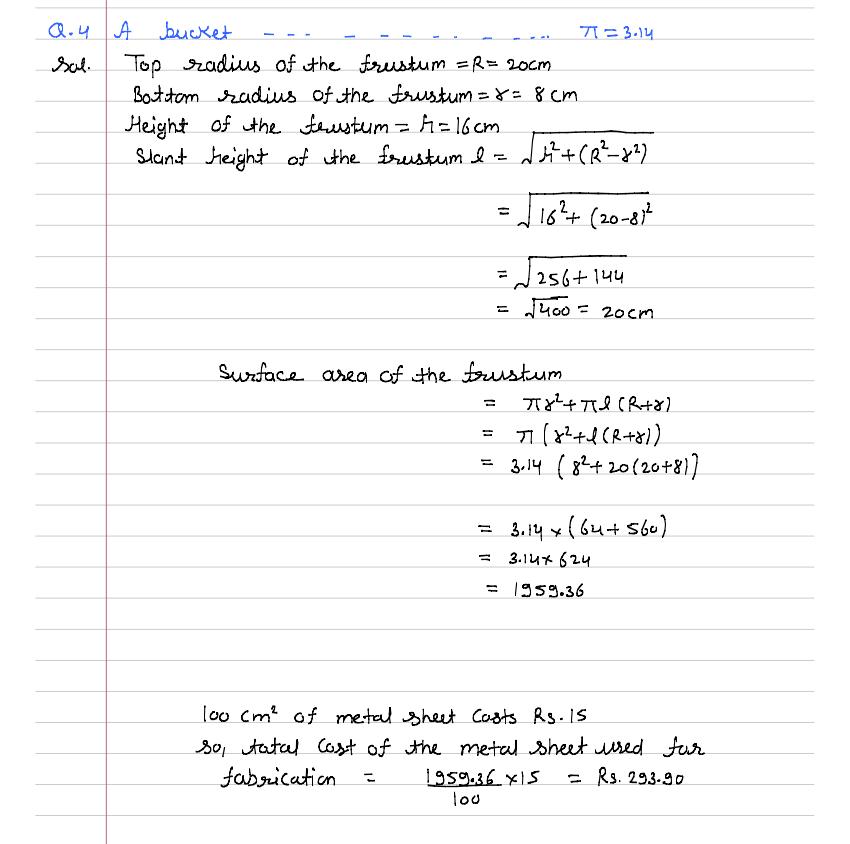 Q.4 A bucket --- - - - - - . - - .... π = 3.14
Sol. Top radius of the frustum = R = 20cm
Bottom radius of the frustum = r = 8 cm
Height of the frustum = h = 16 cm
Slant height of the frustum l = √h²+(R²-r²)
= √16²+(20-8)²
= √256+144
= √400 = 20cm
Surface area of the frustum
= πr²+πl(R+r)
= π(r²+l(R+r))
= 3.14 (8²+20(20+8))
= 3.14 × (64+560)
= 3.14 × 624
= 1959.36
100 cm² of metal sheet Costs Rs. 15
so, total Cost of the metal sheet used for
fabrication = 1959.36/100 × 15 = Rs. 293.90